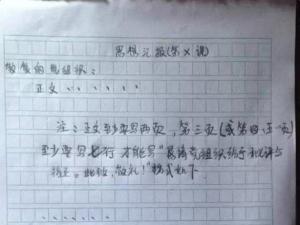 思想汇报(第X课)
敬爱的党组织：
正文、、、、、、
注：正文至少要写两页，第三页(或第四、五页)
至少要写七行才能写“恳请党组织给予批评与
指正。此致，敬礼！”格式如下
、、、、、、